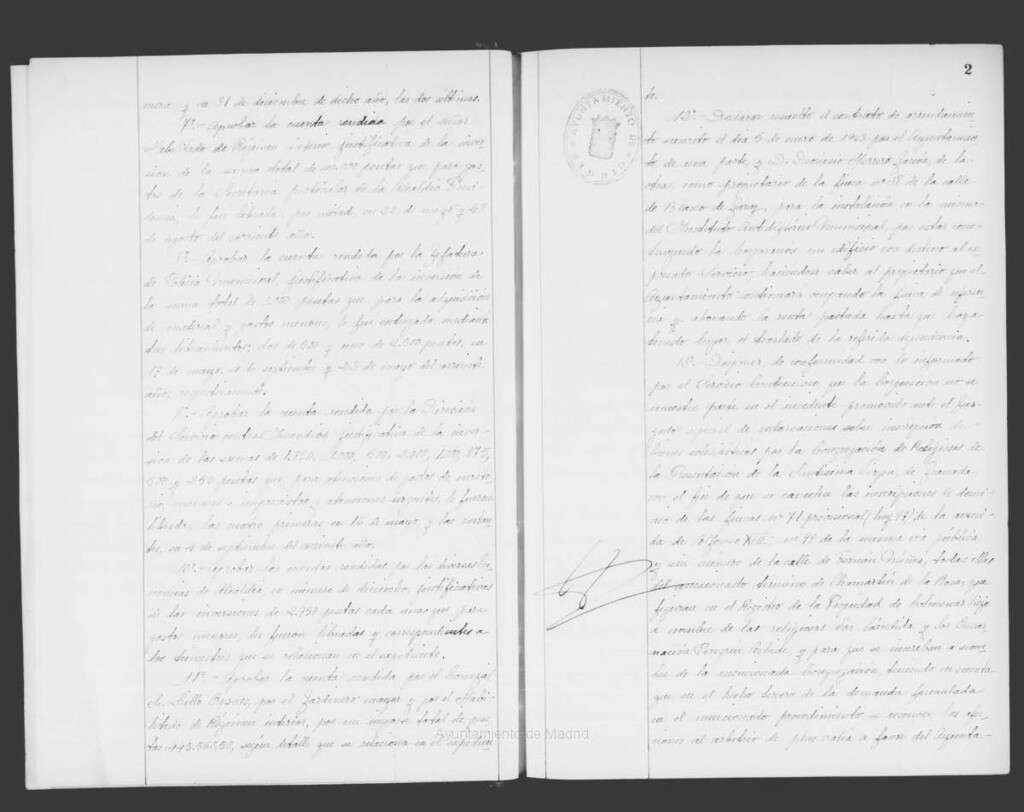 mera y en 31 de diciembre de dicho año, las dos últimas.
7º.- Aprobar la cuenta rendida por el señor
Habilitado de Régimen interior, justificativa de la inver-
sión de la suma total de pesetas que para gas-
tos de la Secretaría particular de la Alcaldía Presi-
dencia, le fué librada, por mitad, en 22 de mayo y
de agosto del corriente año.
8º.- Aprobar la cuenta rendida por la Jefatura
de Policía Municipal, justificativa de la inversión de
la suma total de 3.000 pesetas que para la adquisición
de material y gastos menores, le fué entregada mediante
tres libramientos; dos de 500 y uno de 2.000 pesetas, en
17 de mayo, 4 de septiembre y 23 de mayo del corriente
año, respectivamente.
9º.- Aprobar la cuenta rendida por la Dirección
del Servicio contra Incendios, justificativa de la inver-
sión de las sumas de 1.750, 1.000, 500, 2.000, 1.500, 875,
500 y 250 pesetas que, para atenciones de gastos de
menores e imprevistos y atenciones urgentes, le fueron
libradas, las cuatro primeras en 16 de mayo y las restan-
tes, en 4 de septiembre del corriente año.
10º.- Aprobar las cuentas rendidas por las diversas Te-
nencias de Alcaldía, en número de dieciocho, justificativas
de las inversiones de 2.750 pesetas cada una que, para
gastos menores, les fueron libradas y correspondientes a
los trimestres que se relacionan en el expediente.
11º.- Aprobar la cuenta rendida por el Concejal
Sr. Bello Pesues, por el Jardinero mayor y por el Habi-
litado de Régimen interior, por un importe total de pese-
tas según detalle que se relaciona en el expedien-
2
te.
AYUNTAMIENTO DE MADRID
Declarar resuelto el contrato de arrendamien-
to suscrito el día 5 de enero de 1943 por el Ayuntamien-
to de una parte, y D. Dionisio Herrero García, de la
otra, como propietario de la finca nº 38 de la calle
de Blasco de Garay, para la instalación en la misma
del Instituto Antidiftérico Municipal, por estar cons-
truyendo la Corporación un edificio con destino al ex-
presado Servicio; haciéndose saber al propietario que el
Ayuntamiento continuará ocupando la finca de referen-
cia y abonando la renta pactada hasta que haya
tenido lugar el traslado de la referida dependencia.
Disponer, de conformidad con lo informado
por el Servicio Contencioso, que la Corporación no se
muestre parte en el incidente promovido ante el Juz-
gado especial de reclamaciones sobre inscripción de
bienes eclesiásticos, por la Congregación de Religiosas de
la Presentación de la Santísima Virgen, de Granada,
con el fin de que se cancelen las inscripciones de domi-
nio de las fincas nº 71 provisional (hoy 97) de la aveni-
da de Alfonso XIII; nº 79 de la misma vía pública
y sin número de la calle de Fernán Núñez, todas ellas
del mencionado término de Chamartín de la Rosa, que
figuran en el Registro de la Propiedad de Colmenar Viejo
a nombre de las religiosas Sor Cándida y Sor Encar-
nación Peregrín y para que se inscriban a nom-
bre de la mencionada Congregación, teniendo en cuenta
que en el hecho tercero de la demanda formulada
en el mencionado procedimiento se reconocen las afec-
ciones al arbitrio de plus valía a favor del Ayunta-
Ayuntamiento de Madrid